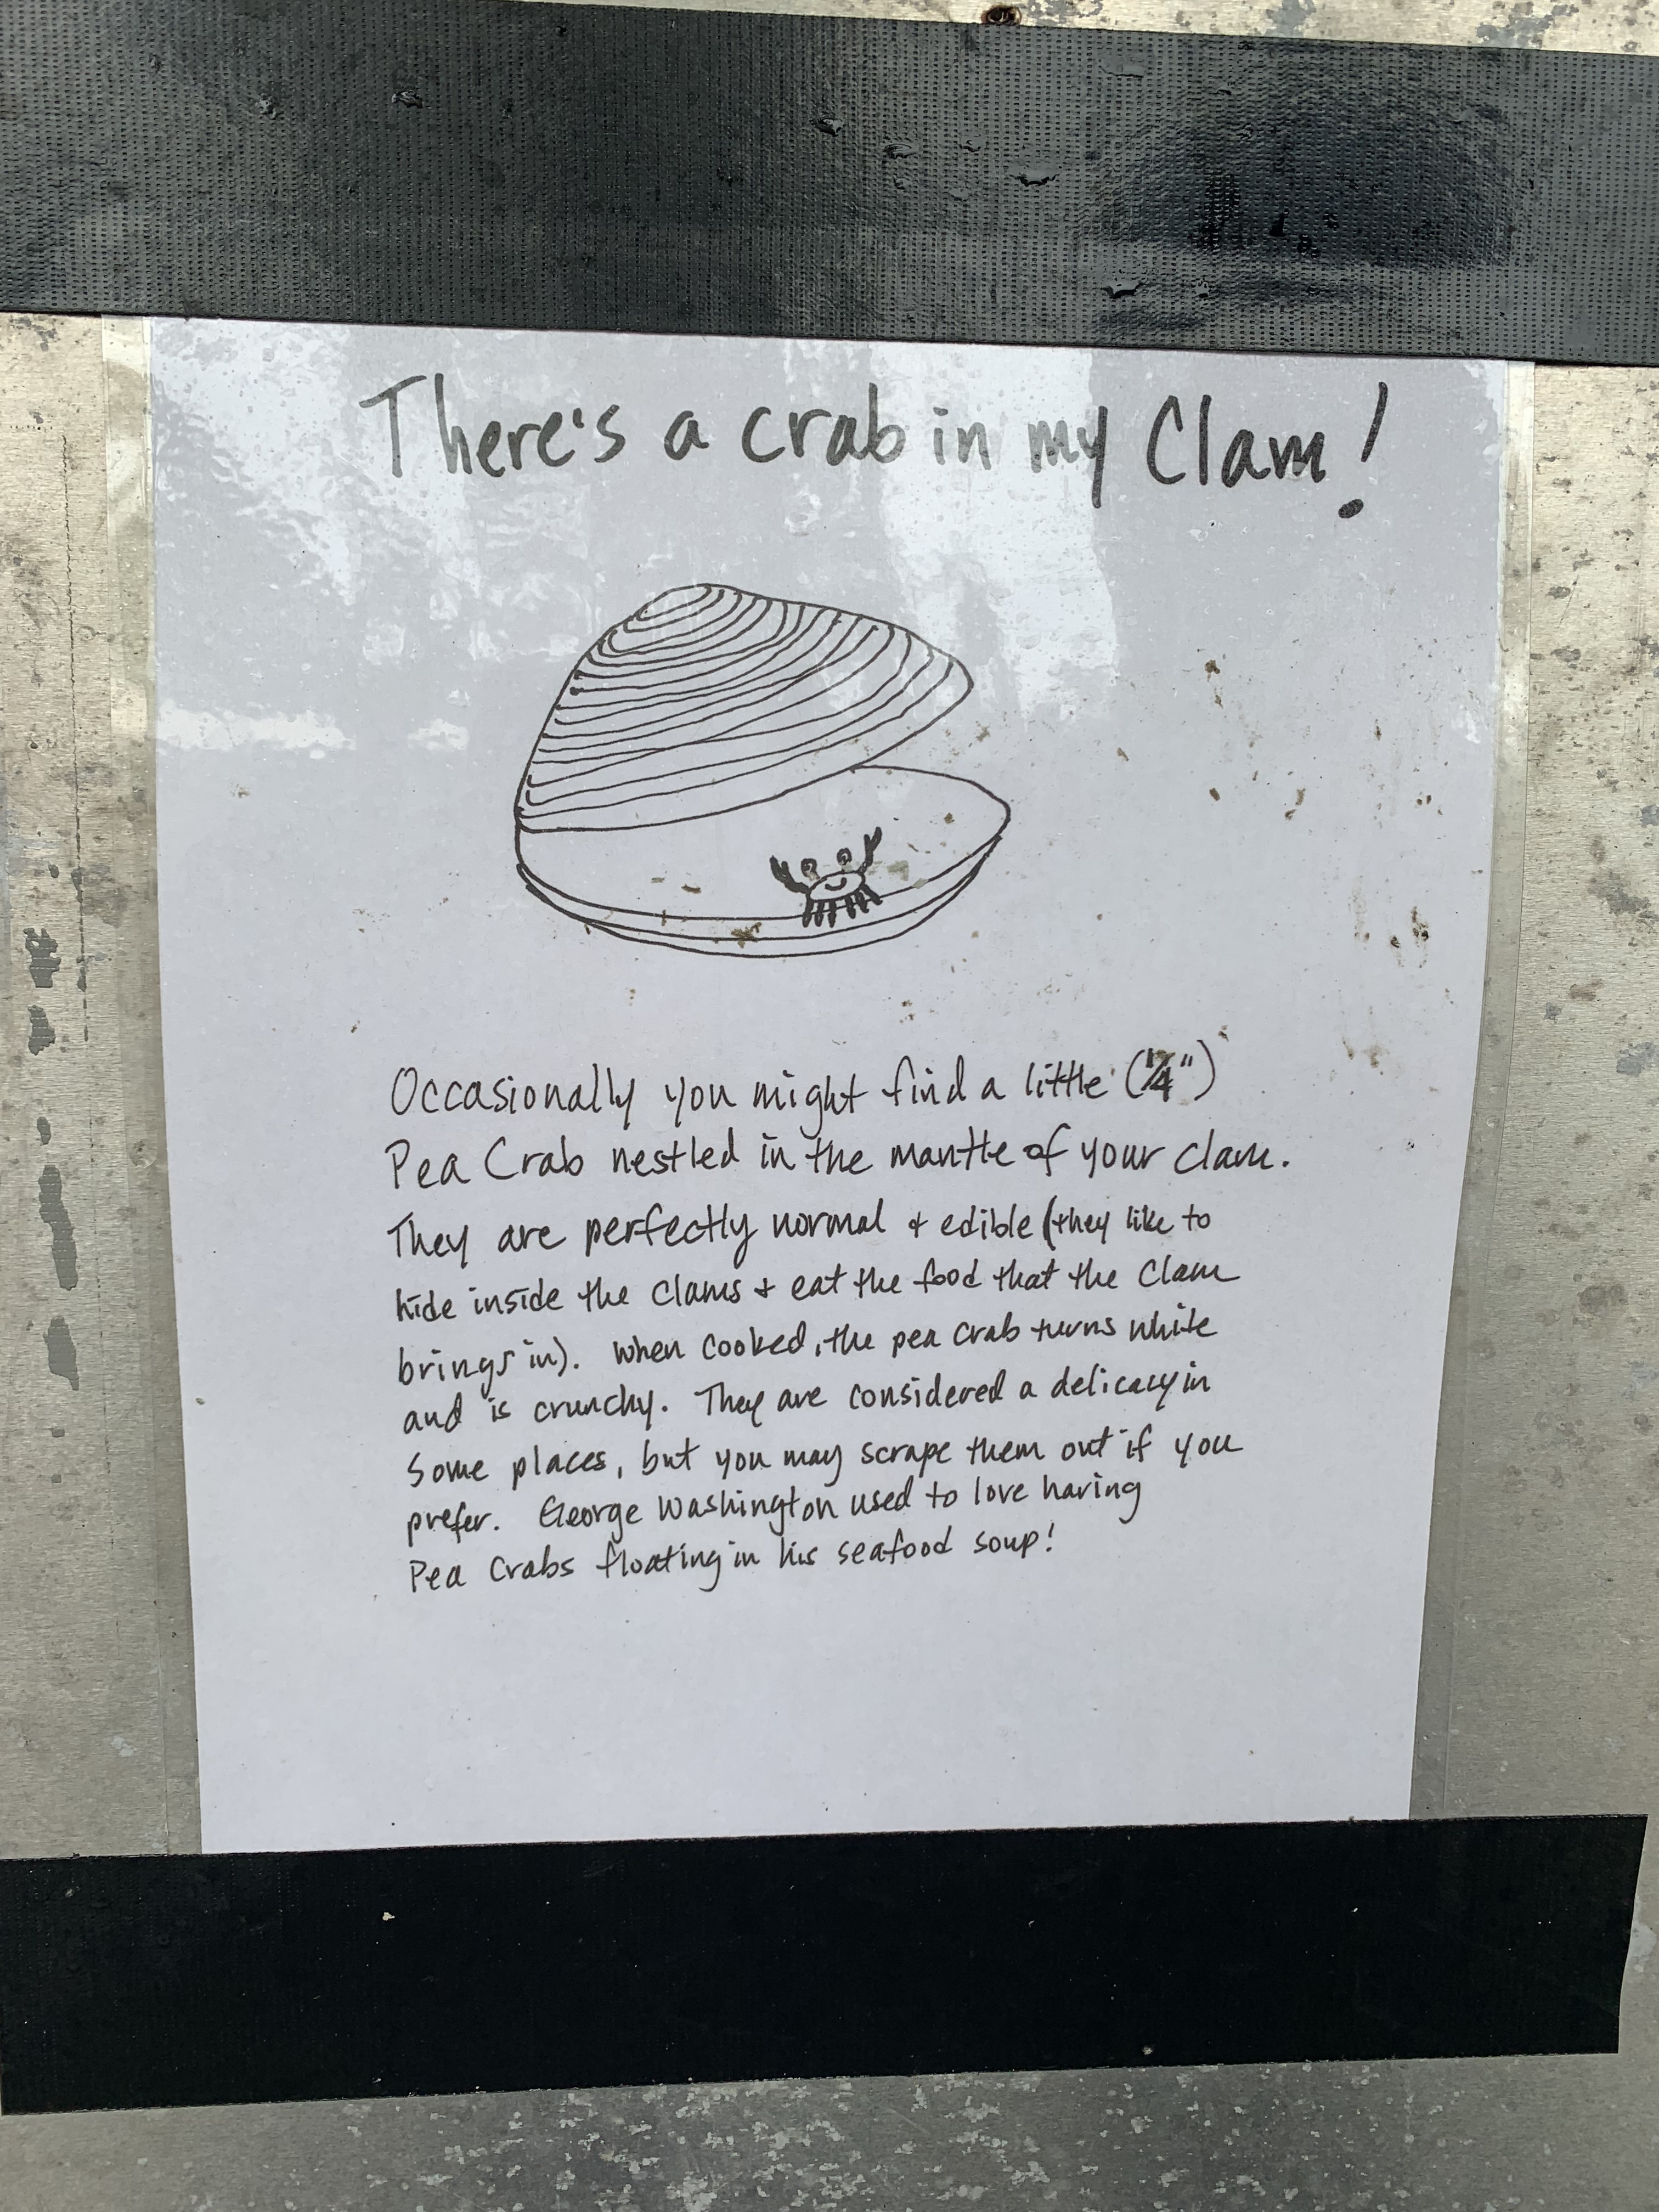 There's a crab in my Clam!
Occasionally you might find a little (1/4")
Pea Crab nestled in the mantle of your clam.
They are perfectly normal & edible (they like to
hide inside the clams & eat the food that the clam
brings in). When cooked, the pea crab turns white
and is crunchy. They are considered a delicacy in
some places, but you may scrape them out if you
prefer. George Washington used to love having
Pea Crabs floating in his seafood soup!